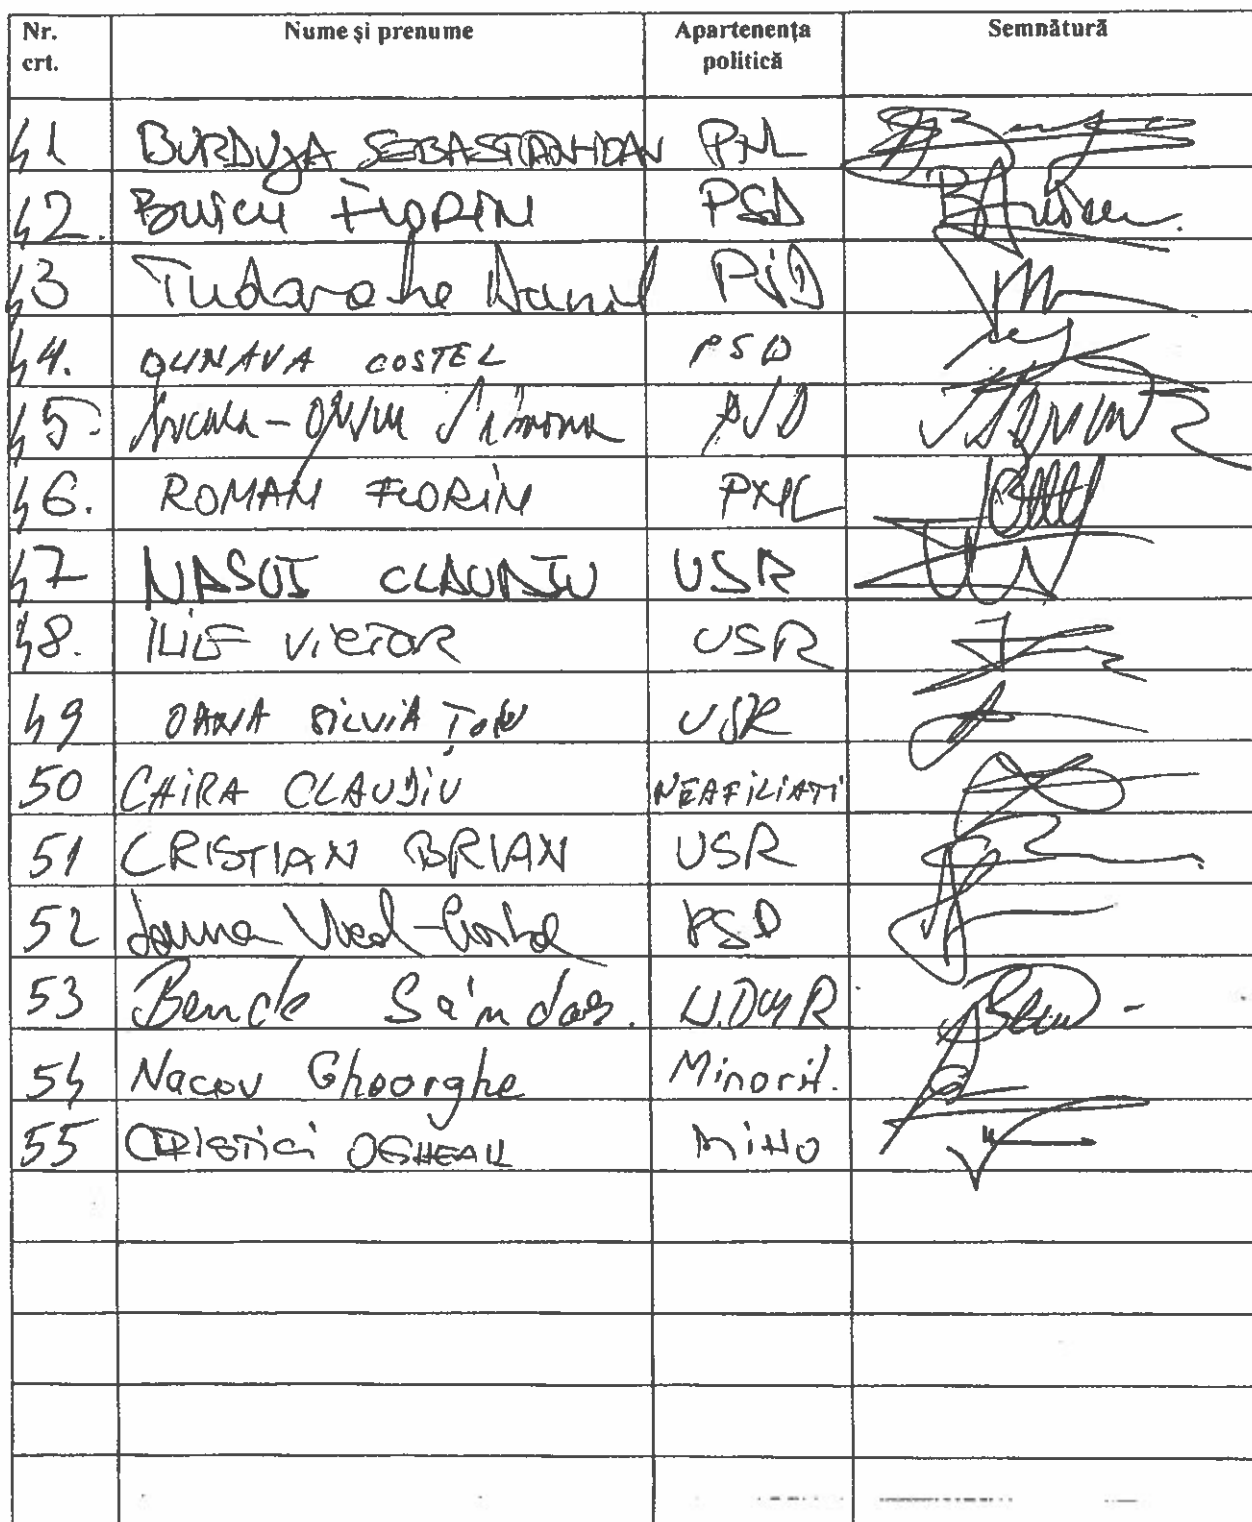 Nr. crt. Nume și prenume Apartenența politică Semnătură
41 BURDUJA SEBASTIAN-IOAN PNL
42. Buicu FLORIN PSD
43 Tudorache Daniel PSD
44. DUNAVA COSTEL PSD
45. Bucura-Oprescu Simona PSD
46. ROMAN FLORIN PNL
47 NASUI CLAUDIU USR
48. ILIE VICTOR USR
49 OANA SILVIA ȚOIU USR
50 CHIRA CLAUDIU NEAFILIATI
51 CRISTIAN BRIAN USR
52 PSD
53 Bende Sándor. UDMR
54 Nacov Gheorghe Minorit.
55 MINO